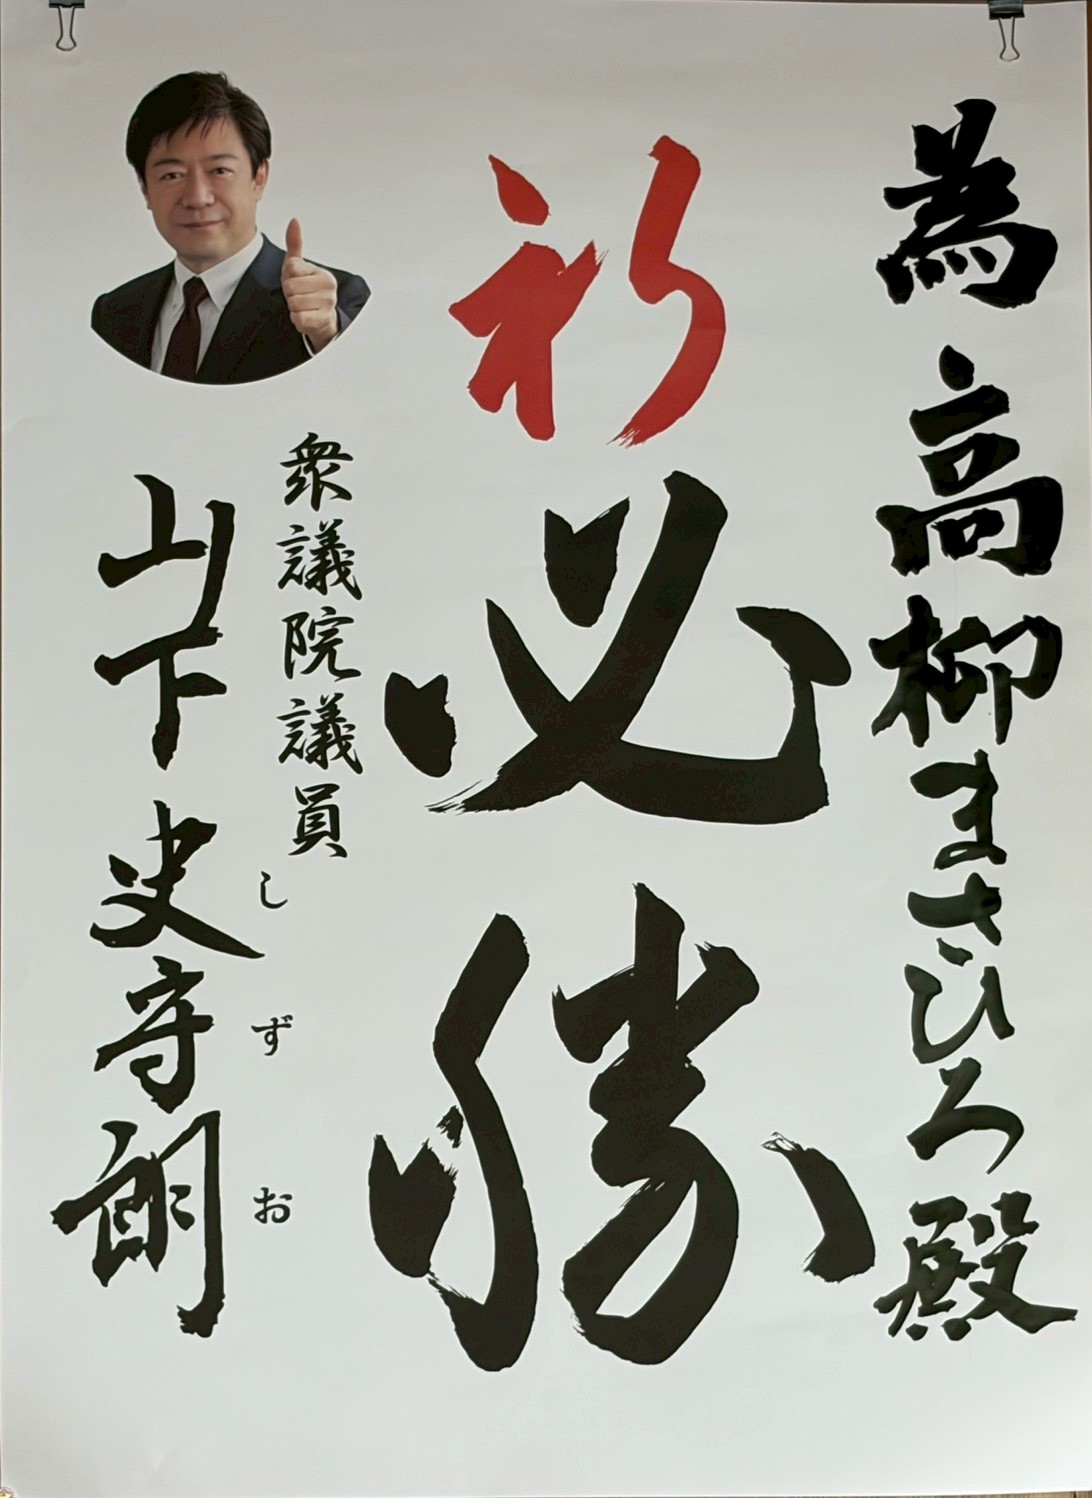 為 高柳まさひろ殿
祈必勝
衆議院議員
しずお
山下史守朗